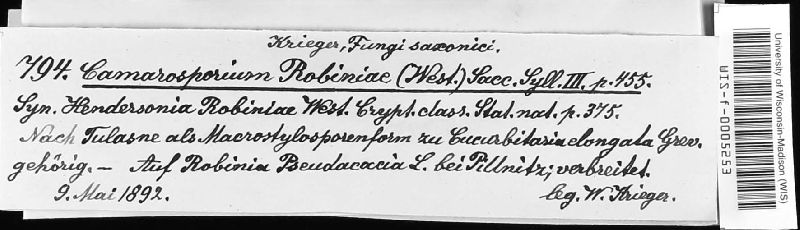 Krieger, Fungi saxonici.
794. Camarosporium Robiniae (West.) Sacc. Syll. III. p. 455.
Syn. Hendersonia Robiniae West. Crypt. class. Stat. nat. p. 375.
Nach Tulasne als Macrostylosporenform zu Cucurbitaria elongata Grev.
gehörig. — Auf Robinia Pseudacacia L. bei Pillnitz; verbreitet.
9. Mai 1892. leg. W. Krieger.
University of Wisconsin-Madison (WIS)
WIS-f-0005253